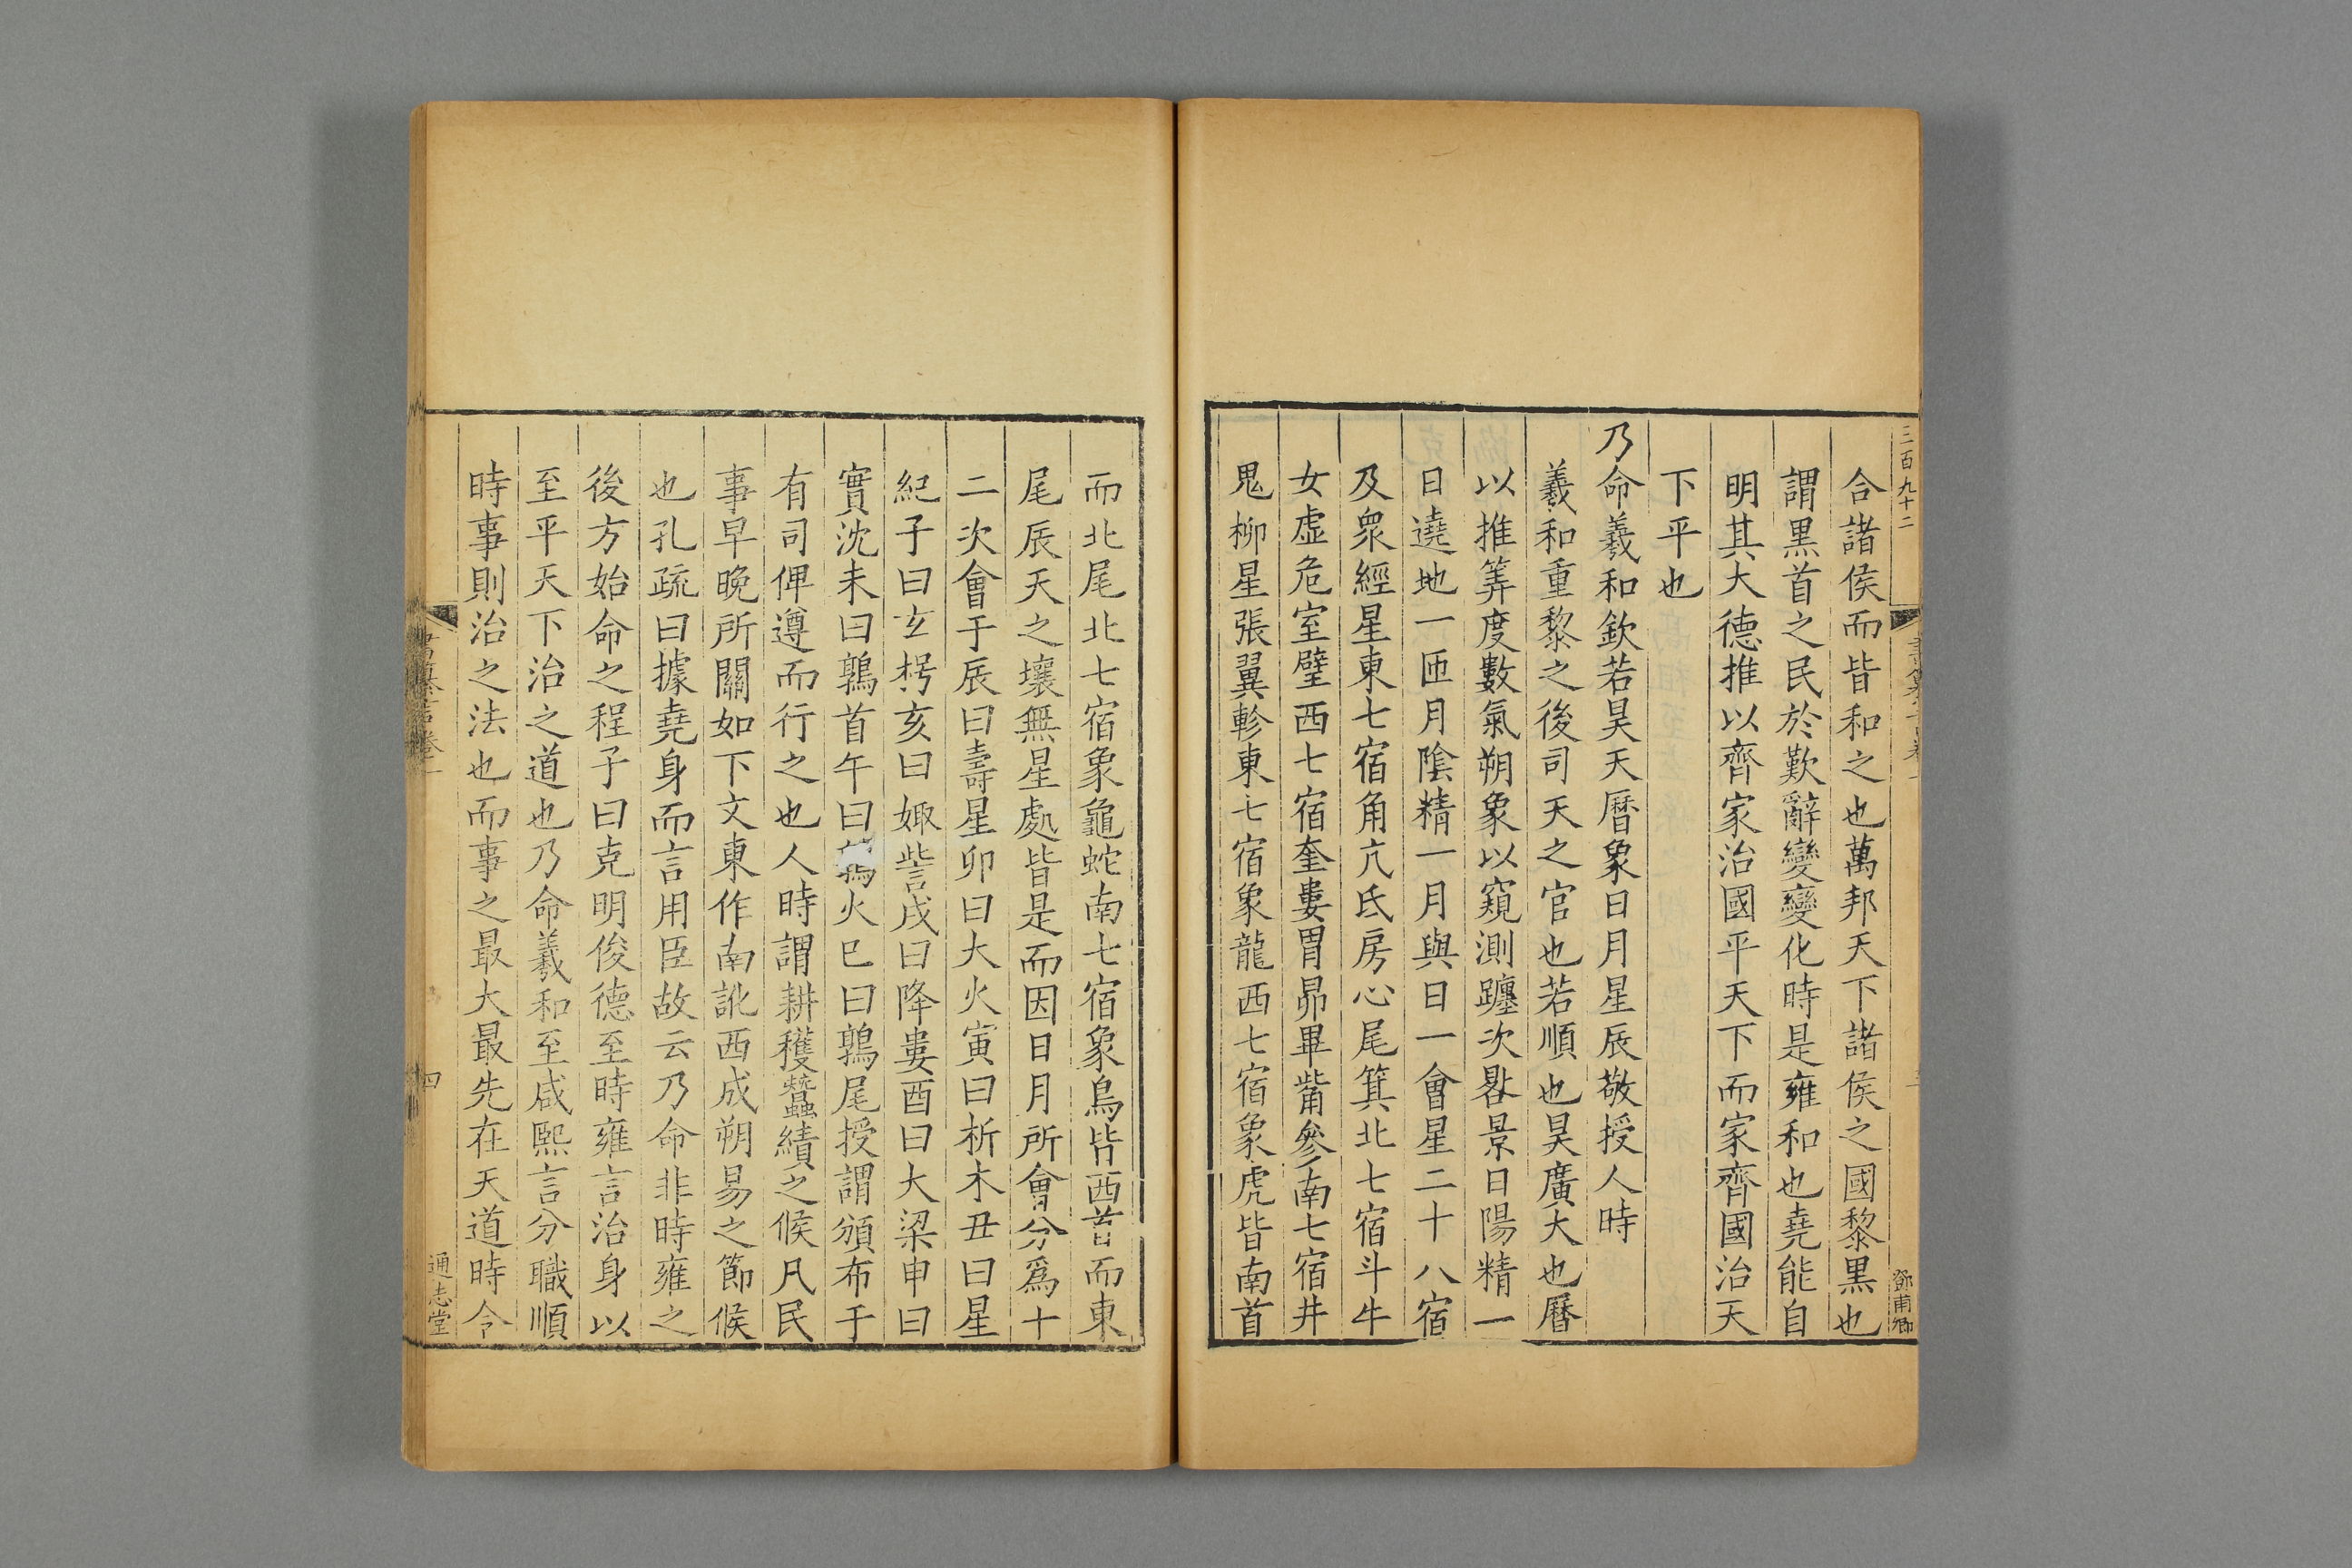 三百九十二
鄧甫卿
合諸侯而皆和之也萬邦天下諸侯之國黎黑也
謂黑首之民於歎辭變變化時是雍和也堯能自
明其大德推以齊家治國平天下而家齊國治天
下平也
乃命羲和欽若昊天曆象日月星辰敬授人時
羲和重黎之後司天之官也若順也昊廣大也曆
以推筭度數氣朔象以窺測躔次晷景日陽精一
日遶地一匝月陰精一月與日一會星二十八宿
及衆經星東七宿角亢氐房心尾箕北七宿斗牛
女虛危室壁西七宿奎婁胃昴畢觜參南七宿井
鬼柳星張翼軫東七宿象龍西七宿象虎皆南首
而北尾北七宿象龜蛇南七宿象鳥皆西首而東
尾辰天之壤無星處皆是而因日月所會分爲十
二次會于辰曰壽星卯曰大火寅曰析木丑曰星
紀子曰玄枵亥曰娵訾戌曰降婁酉曰大梁申曰
實沈未曰鶉首午曰火巳曰鶉尾授謂頒布于
有司俾遵而行之也人時謂耕穫蠶績之候凡民
事早晚所關如下文東作南訛西成朔易之節候
也孔疏曰據堯身而言用臣故云乃命非時雍之
後方始命之程子曰克明俊德至時雍言治身以
至平天下治之道也乃命羲和至咸熙言分職順
時事則治之法也而事之最大最先在天道時令
四
通志堂